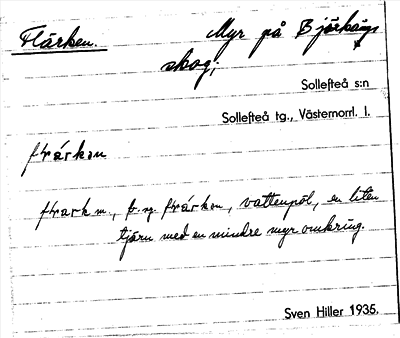 Flärken. Myr på Björkängs
skog;
Sollefteå s:n
Sollefteå tg., Västernorrl. l.
flärkən
flark m., b. sg. flärkən, vattenpöl, en liten
tjärn med en mindre myr omkring.
Sven Hiller 1935.